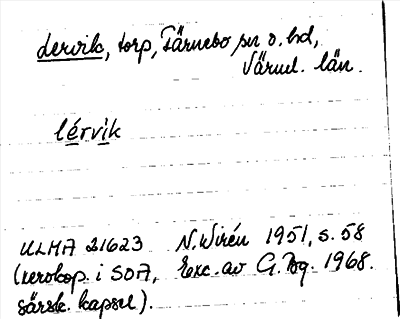 Lervik, torp, Färnebo sn o. hd,
Värml. län.
lérvik
ULMA 21623 N. Wirén 1951, s. 58
(xerokop. i SOA, Exc. av G. Bg. 1968.
särsk. kapsel).